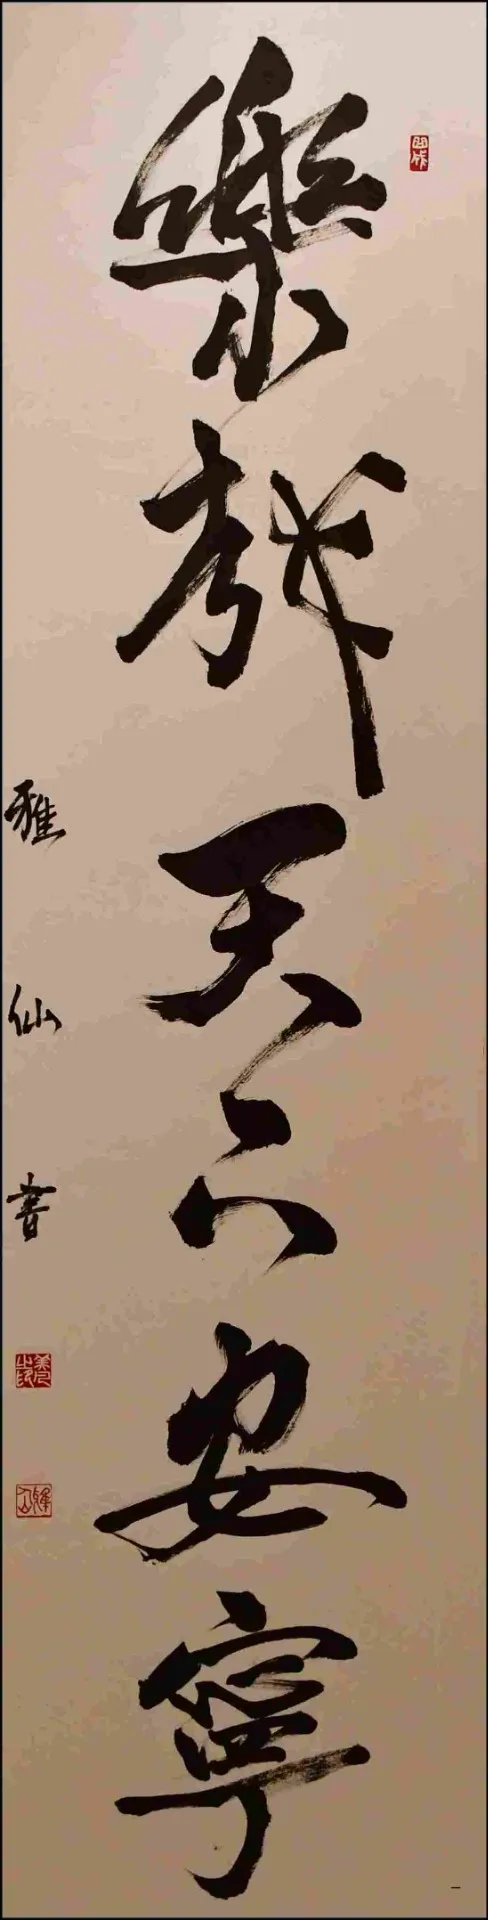 樂哉天下安寧
雅仙書